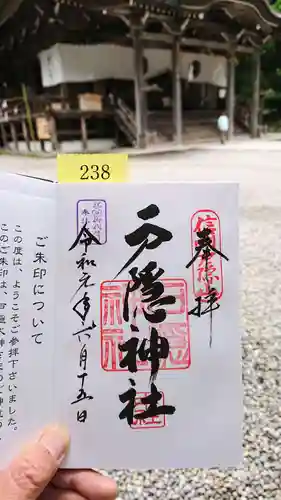 238
奉拝
戸隠神社
令和元年六月十五日
ご朱印について
この度は、ようこそご参拝下さいました。
このご朱印は、戸隠大神さまのご神